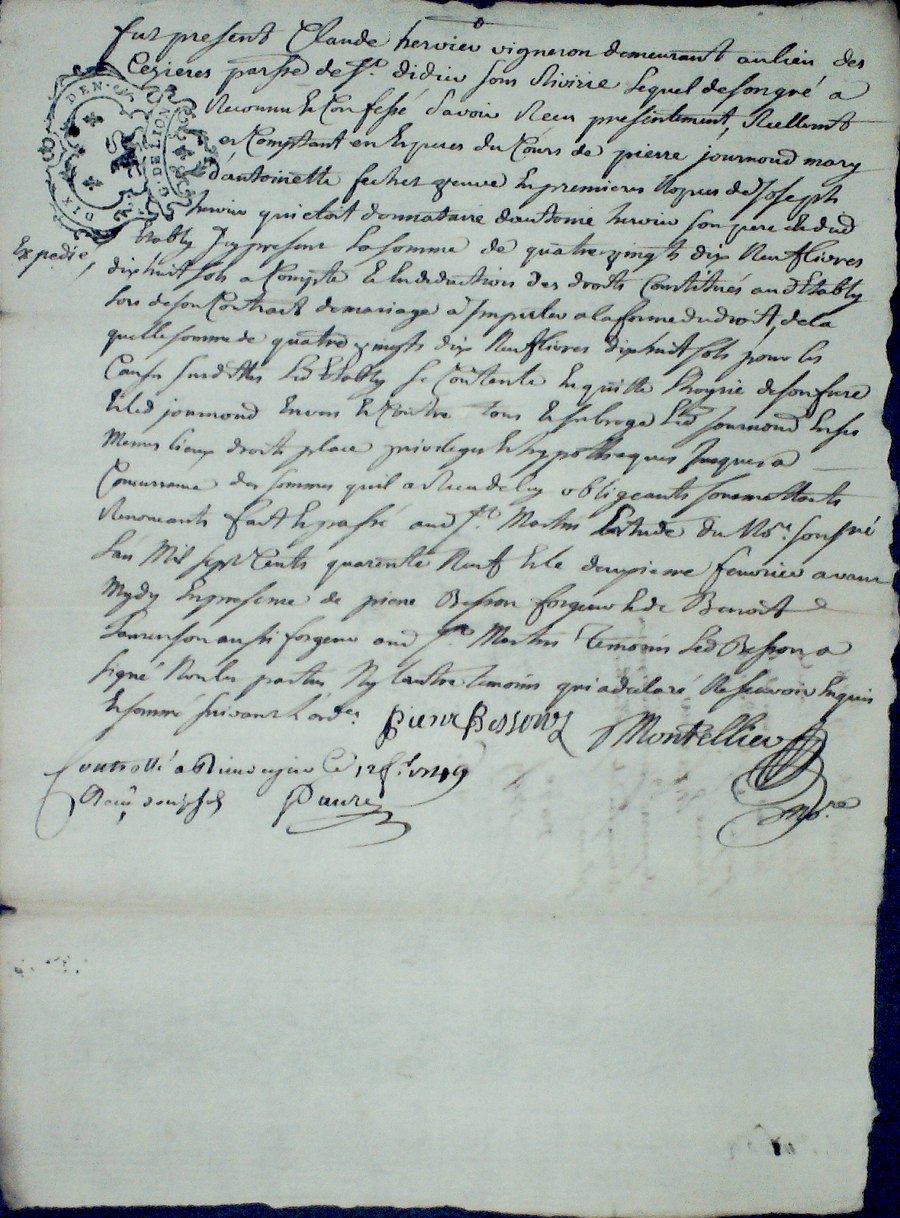 fut present Claude hervieu vigneron demeurant au lieu des
parsse de St. didier sous Riverie lequel de son gré a
Reconnu et Confessé d'avoir Receu presentement, Reellemt
et Comptant en Especes du Cours de pierre journoud mary
d'antoinette veuve en premieres Nopces de Joseph
hervieu qui etoit donnataire d'antoine hervieu son pere et dud
Etably Icy present La somme de quatre vingts dix Neuf livres
Expedié
dix huit sols a Compte et En deduction des droits Constitués aud Etably
Lors de son Contract de mariage a Imputer a la forme du droit, de la
quelle somme de quatre vingts dix Neuf livres dix huit sols pour les
Causes susdittes Led Etably se Contente En quitte
Et led journoud Envers Et Contre tous Et subroge Led Journoud En ses
Memes lieux droits place privileges Et hypotheques Jusques a
Concurrance des sommes qu'il a Receu de luy obligeants soumettants
Renonceants fait Et passé aud St. Martin Estude du Nore. soussigné
L'an Mil sept Cents quarente Neuf Et le deuxieme fevrier avant
Mydy En presence de pierre Besson forgeur Et de Benoit
Laurenson aussi forgeur aud St. Martin Temoins Led Besson a
signé Non les parties Ny l'autre temoins qui a declaré Ne scavoir Enquis
Et sommé suivant L'orde.
Pierre Besson
Montellier
Nore
Controllé a Rivedegier le 12 f. 1749
Receu douze sols